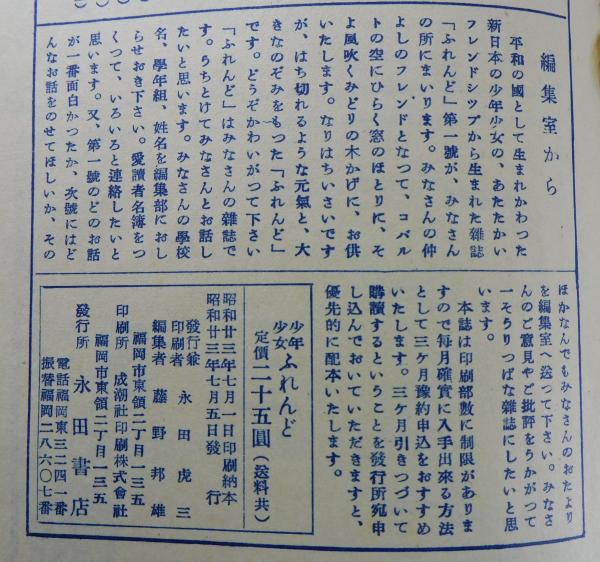 編集室から
平和の國として生まれかわった
新日本の少年少女の、あたたかい
フレンドシツプから生まれた雜誌
「ふれんど」第一號が、みなさん
の所にまいります。みなさんの仲
よしのフレンドとなつて、コバル
トの空にひらく窓のほとりに、そ
よ風吹くみどりの木かげに、お供
いたします。なりはちいさいです
が、はち切れるような元氣と、大
きなのぞみをもつた「ふれんど」
です。どうぞかわいがつて下さい
「ふれんど」はみなさんの雜誌で
す。うちとけてみなさんとお話し
たいと思います。みなさんの學校
名、學年組、姓名を編集部におし
らせおき下さい。愛讀者名簿をつ
くつて、いろいろと連絡したいと
思います。又、第一號のどのお話
が一番面白かつたか、次號にはど
んなお話をのせてほしいか、その
ほかなんでもみなさんのおたより
を編集室へ送つて下さい。みなさ
んのご意見やご批評をうかがつて
一そうりつぱな雜誌にしたいと思
います。
本誌は印刷部數に制限がありま
すので毎月確實に入手出來る方法
として三ケ月豫約申込をおすすめ
いたします。三ケ月引きつづいて
購讀するということを發行所宛申
し込んでおいていただきますと、
優先的に配本いたします。
少年
少女 ふれんど
定價二十五圓(送料共)
昭和廿三年七月一日印刷納本
昭和廿三年七月五日發行
發行兼
印刷者 永田虎三
編集者 藤野邦雄
福岡市東領二丁目一三五
印刷所 成潮社印刷株式會社
福岡市東領二丁目一三五
發行所 永田書店
電話福岡東三二四一番
振替福岡二八六〇七番